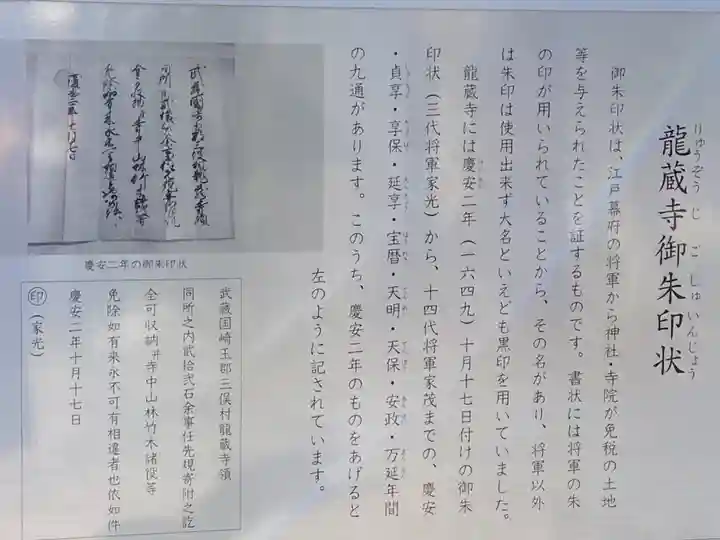 龍蔵寺御朱印状
りゅうぞうじごしゅいんじょう
御朱印状は、江戸幕府の将軍から神社・寺院が免税の土地
等を与えられたことを証するものです。書状には将軍の朱
の印が用いられていることから、その名があり、将軍以外
は朱印は使用出来ず大名といえども黒印を用いていました。
龍蔵寺には慶安二年（一六四九）十月十七日付けの御朱
印状（三代将軍家光）から、十四代将軍家茂までの、慶安
・貞享・享保・延享・宝暦・天明・天保・安政・万延年間
の九通があります。このうち、慶安二年のものをあげると
左のように記されています。
慶安二年の御朱印状
武蔵国崎玉郡三俣村龍蔵寺領
同所之内弐拾弐石余事任先規寄附之訖
全可収納并寺中山林竹木諸役等
免除如有来永不可有相違者也依如件
慶安二年十月十七日
印（家光）